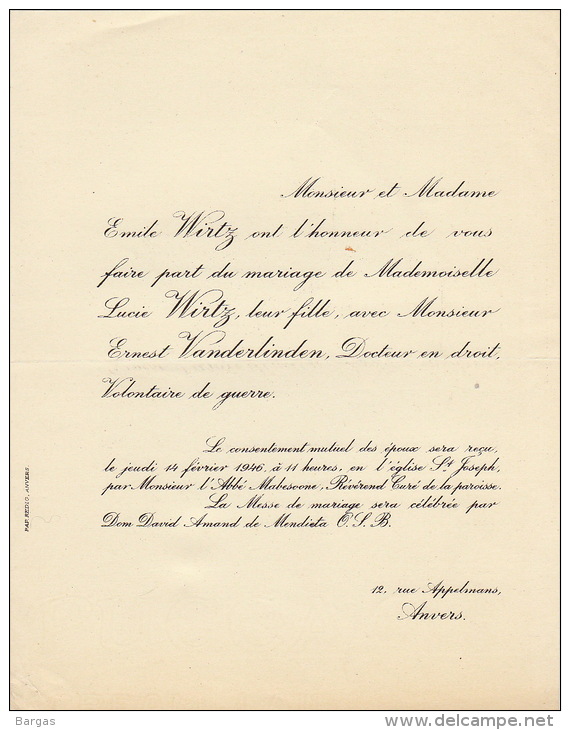 Monsieur et Madame
Emile Wirtz ont l'honneur de vous
faire part du mariage de Mademoiselle
Lucie Wirtz, leur fille, avec Monsieur
Ernest Vanderlinden, Docteur en droit,
Volontaire de guerre.
Le consentement mutuel des époux sera reçu,
le jeudi 14 février 1946, à 11 heures, en l'église St Joseph,
par Monsieur l'Abbé Mabesoone, Révérend Curé de la paroisse.
La Messe de mariage sera célébrée par
Dom David Amand de Mendieta O.S.B.
12, rue Appelmans,
Anvers.
PAP. REDLO, ANVERS.
Bargas
www.delcampe.net